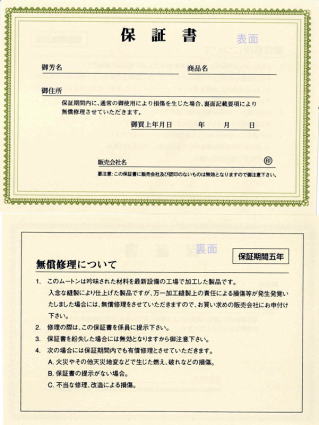 保証書
表面
御芳名
商品名
御住所
保証期間内に、通常の御使用により損傷を生じた場合、裏面記載要項により
無償修理させていただきます。
御買上年月日　　年　　月　　日
販売会社名　　㊞
要注意:この保証書に販売会社及び認印のないものは無効となりますので御注意下さい。
裏面
保証期間五年
無償修理について
1. このムートンは吟味された材料を最新設備の工場で加工した製品です。
入念な縫製により仕上げた製品ですが、万一加工縫製上の責任による損傷等が発生発覚い
たしました場合には、無償修理をさせていただきますので、お買い求めの販売会社にお申付け
下さい。
2. 修理の際は、この保証書を係員に提示下さい。
3. 保証書を紛失した場合には無効となりますから御注意下さい。
4. 次の場合には保証期間内でも有償修理とさせていただきます。
A. 火災やその他天災地変などで生じた燃え、破れなどの損傷。
B. 保証書の提示がない場合。
C. 不当な修理、改造による損傷。